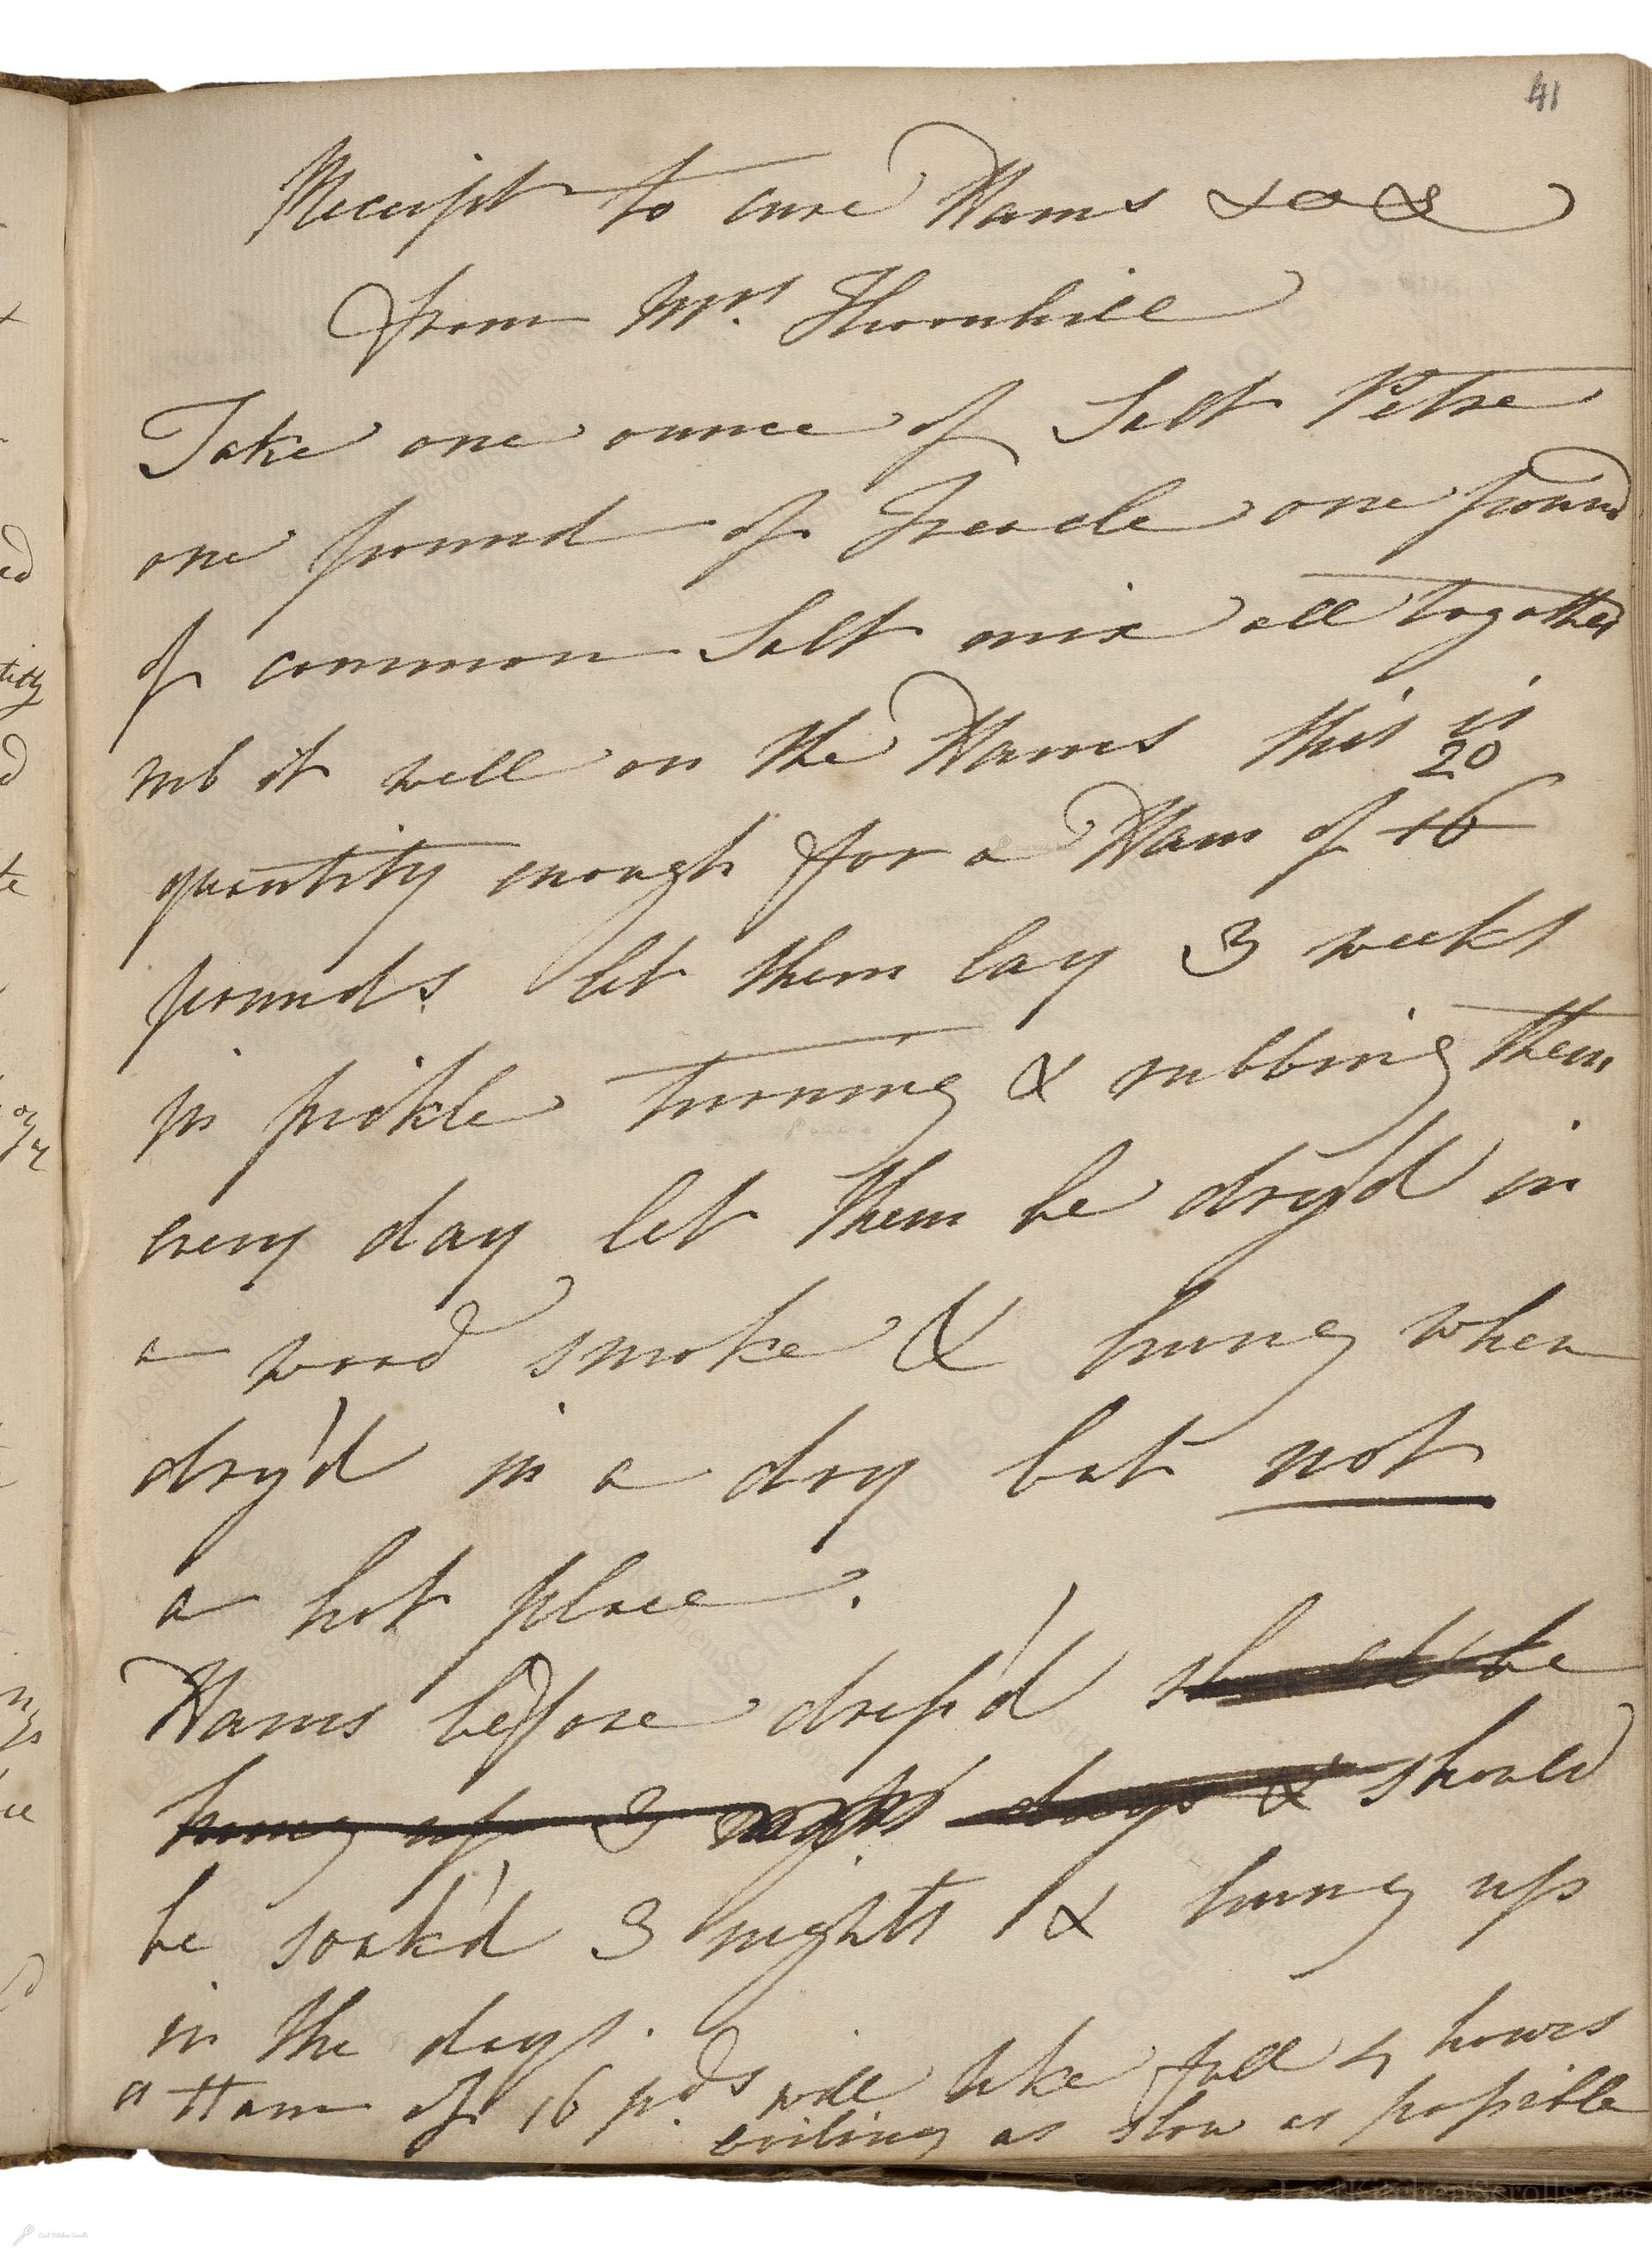 41
Receipt to cure Hams
from Mrs. Thornhill
Take one ounce of Salt Petre
one pound of Treacle one pound
of common Salt mix all together
rub it well on the Hams this is
20
quantity enough for a Ham of 16
pounds. let them lay 3 weeks
in pickle turning & rubbing them
every day let them be dry'd in
a wood smoke & hung when
dry'd in a dry but not
a hot place.
Hams before dress'd should be
hung up 3 nights days & should
be soak'd 3 nights & hung up
in the days.
a Ham of 16 pds will take full 4 hours
boiling as slow as possible
LostKitchenScrolls.org
Lost Kitchen Scrolls